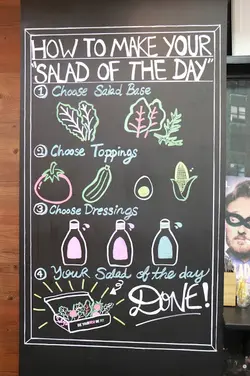 HOW TO MAKE YOUR
"SALAD OF THE DAY"
1 Choose Salad Base
2 Choose Toppings
3 Choose Dressings
4 Your Salad of the day
DONE!